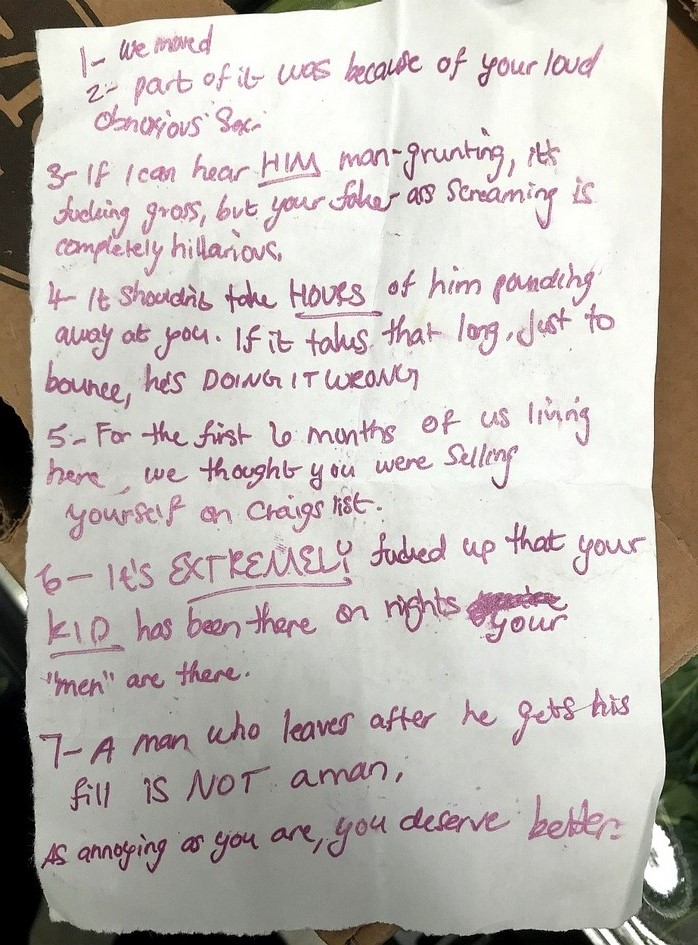 1- We moved
2- part of it was because of your loud
obnoxious Sex.
3- If I can hear HIM man-grunting, it's
fucking gross, but your faker ass Screaming is
completely hillarious.
4- It shouldn't take HOURS of him pounding
away at you. If it takes that long, just to
bounce, he's DOING IT WRONG
5- For the first 6 months of us living
here, we thought you were Selling
yourself on Craigslist.
6- It's EXTREMELY fucked up that your
KID has been there on nights
your
"men" are there.
7- A man who leaves after he gets his
fill is NOT a man,
As annoying as you are, you deserve better.